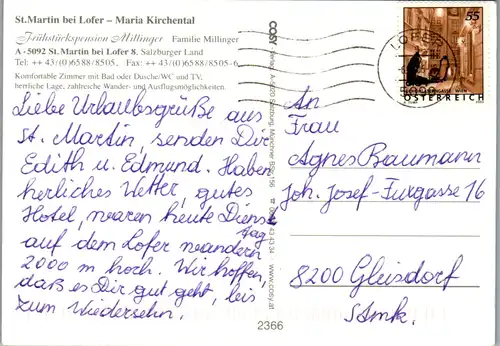 St.Martin bei Lofer – Maria Kirchental
Frühstückspension Millinger Familie Millinger
A - 5092 St. Martin bei Lofer 8, Salzburger Land
Tel: ++ 43/(0)6588/8505, Fax: ++ 43/(0)6588/8505-6
Komfortable Zimmer mit Bad oder Dusche/WC und TV,
herrliche Lage, zahlreiche Wander- und Ausflugsmöglichkeiten.
Liebe Urlaubsgrüße aus
St. Martin, senden Dir
Edith u. Edmund. Haben
herliches Wetter, gutes
Hotel, waren heute Diens
tag
auf dem Lofer wandern
2000 m hoch. Wir hoffen,
daß es Dir gut geht, bis
zum Wiedersehn,
COSY Verlag, A-5020 Salzburg, Münchner BStr. 156
43 43 34 www.cosy.at
2366
LOFER
5090
55
WIEN
ÖSTERREICH
An
Frau
Agnes Baumann
Joh. Josef-Fuxgasse 16
8200 Gleisdorf
Stmk.